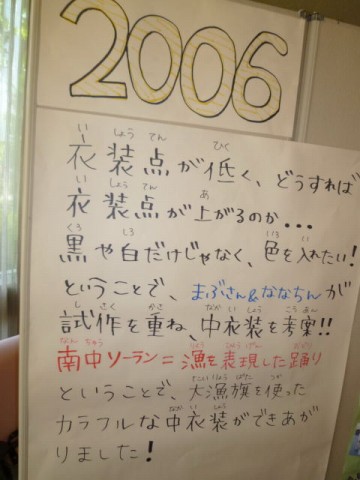 2006
衣装点が低く、どうすれば
衣装点が上がるのか...
黒や白だけじゃなく、色を入れたい!
ということで、まぶさん&ななちんが
試作を重ね、中衣装を考案!!
南中ソーラン=漁を表現した踊り
ということで、大漁旗を使った
カラフルな中衣装ができあが
りました!